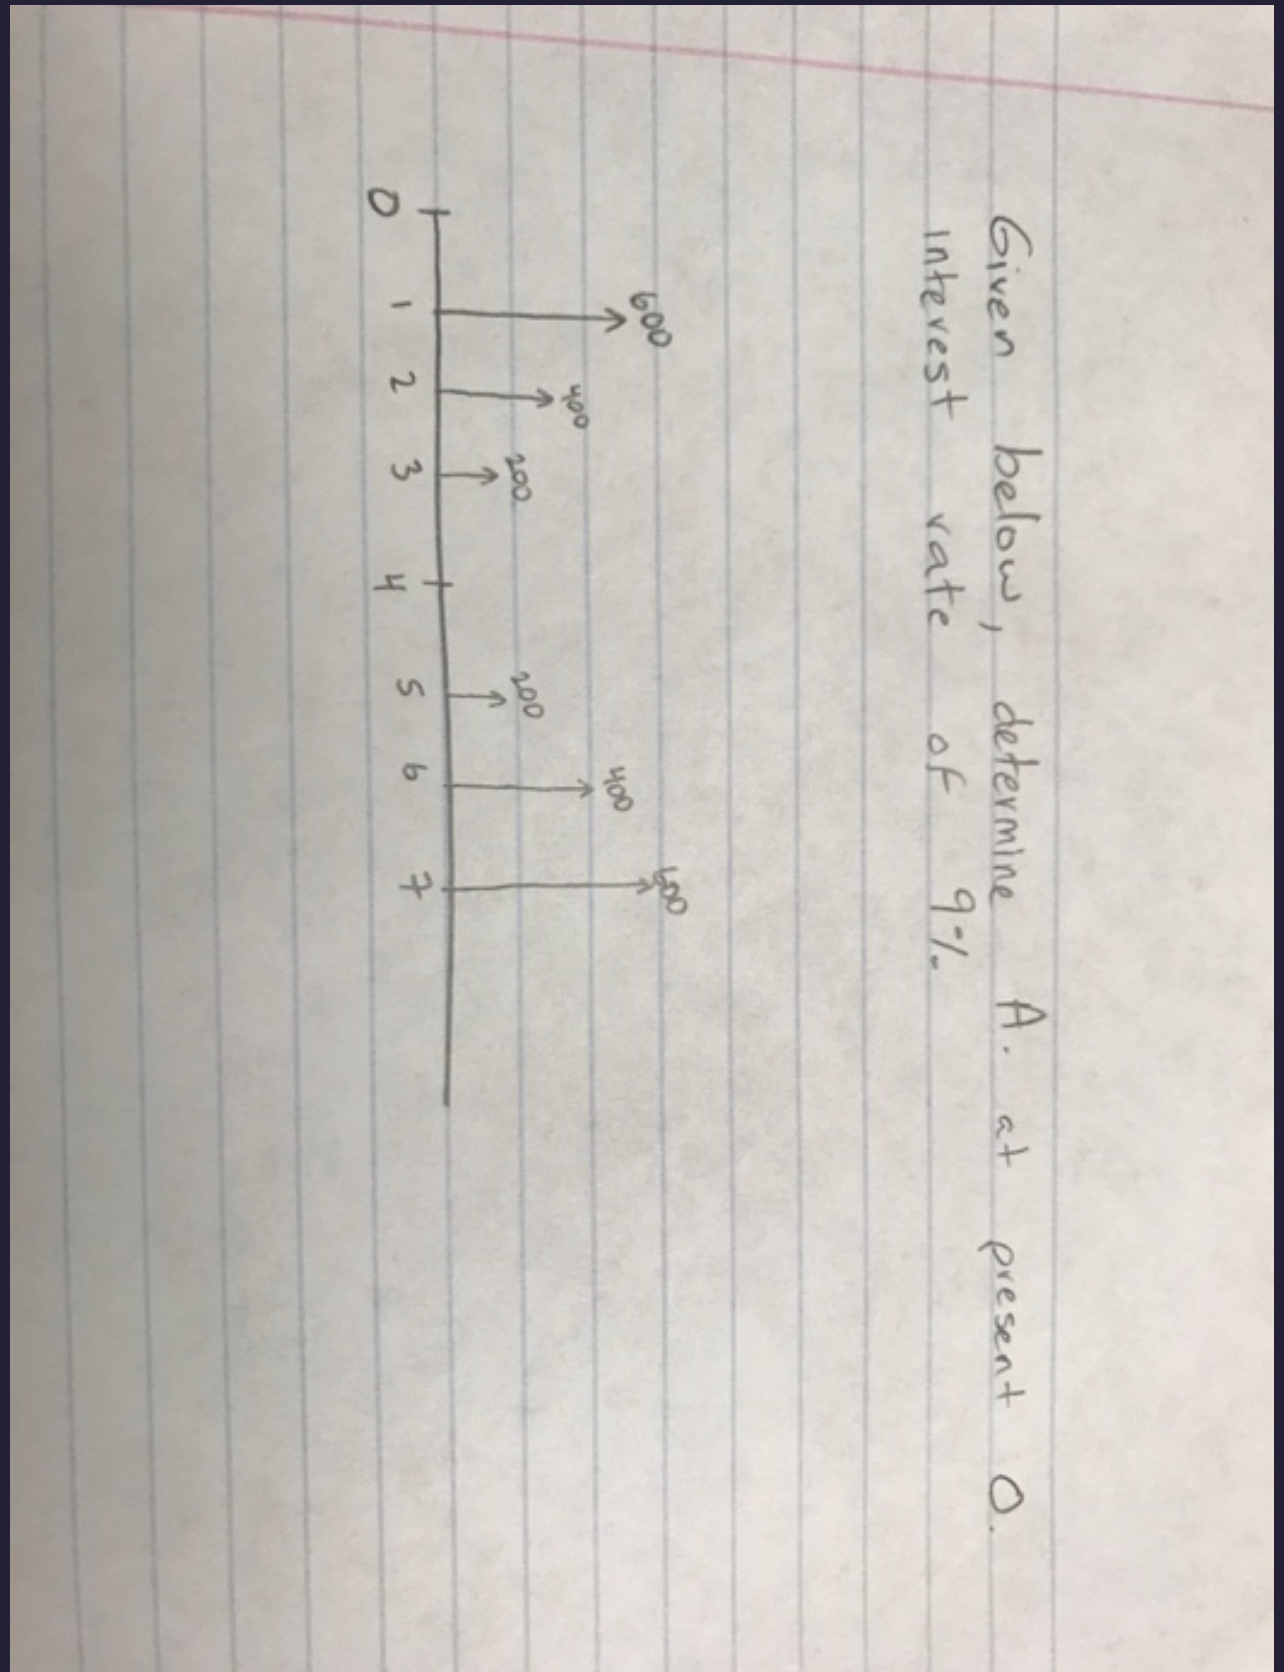 Given below, determine A. at present 0.
interest rate of 9%
600
400
200
200
400
600
0 1 2 3 4 5 6 7